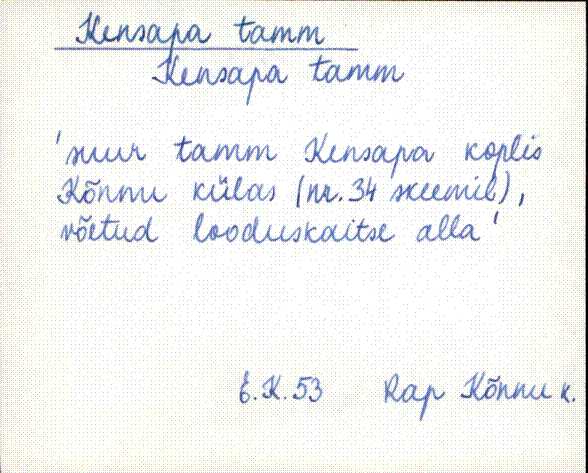 Kensapa tamm
Kensapa tamm
'suur tamm Kensapa koplis
Kõnnu külas (nr. 34 skeemil),
võetud looduskaitse alla'
E.K. 53 Rap Kõnnu k.